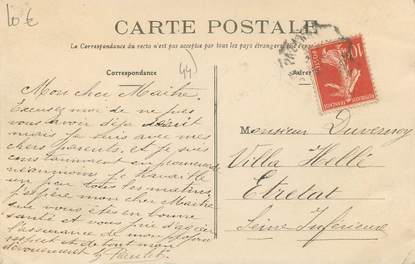 10 €
CARTE POSTALE
La Correspondance du recto n'est pas acceptée par tous les pays étrangers
Correspondance
44
Mon cher Maître,
Excusez moi de ne pas
vous avoir déjà écrit
mais je suis avec mes
chers parents, et je suis
constamment en promenade
néanmoins je travaille
un peu tous les matins
J'espère mon cher Maître
que vous êtes en bonne
santé et vous prie d'agréer
l'assurance de mon profond
respect et de tout mon
dévouement
10
Monsieur Duvernoy
Villa Hellé
Etretat
Seine Inférieure